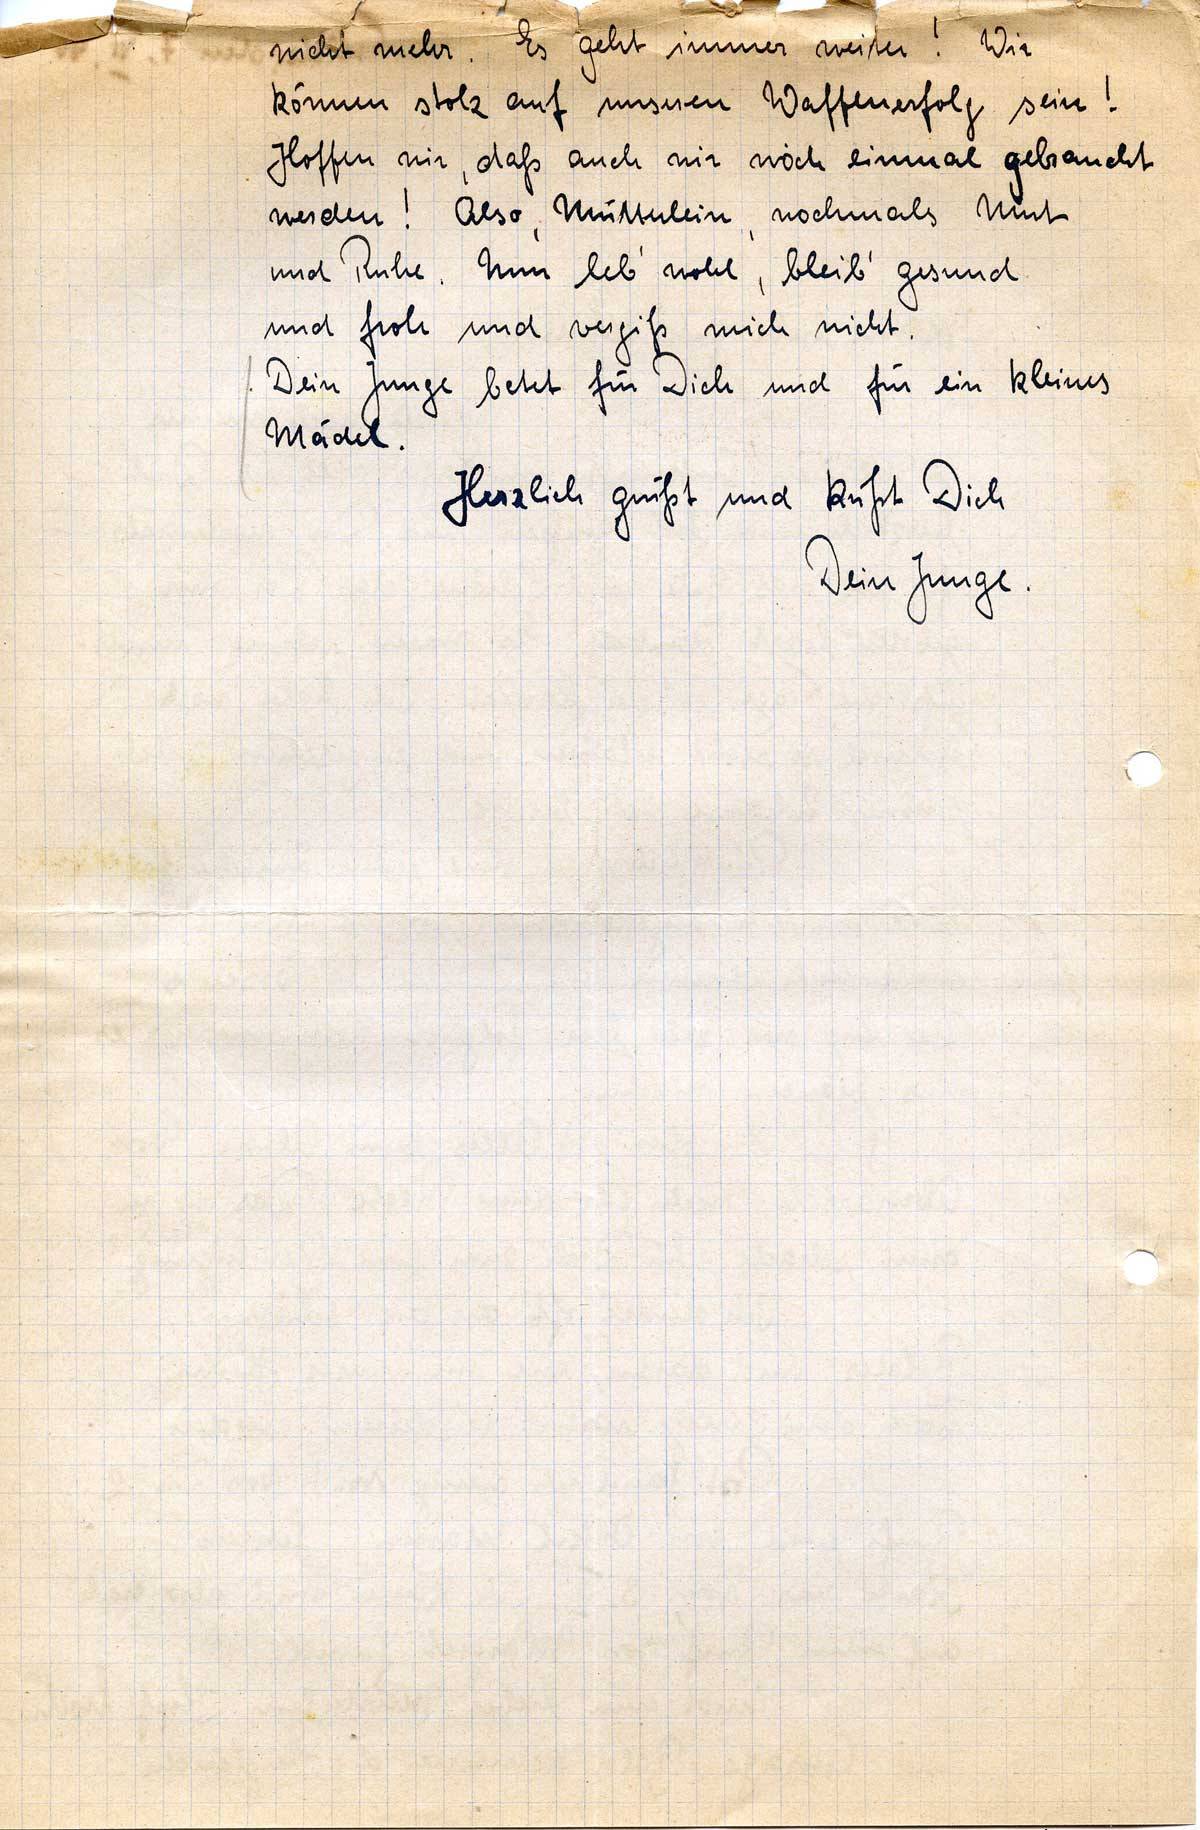 nicht mehr. Es geht immer weiter! Wir
können stolz auf unseren Waffenerfolg sein!
Hoffen wir, daß auch wir noch einmal gebraucht
werden! Also, Mütterlein, nochmals Mut
und Ruhe. Nun leb' wohl, bleib' gesund
und froh und vergiß mich nicht.
Dein Junge betet für Dich und für ein kleines
Mädel.
Herzlich grüßt und küßt Dich
Dein Junge.